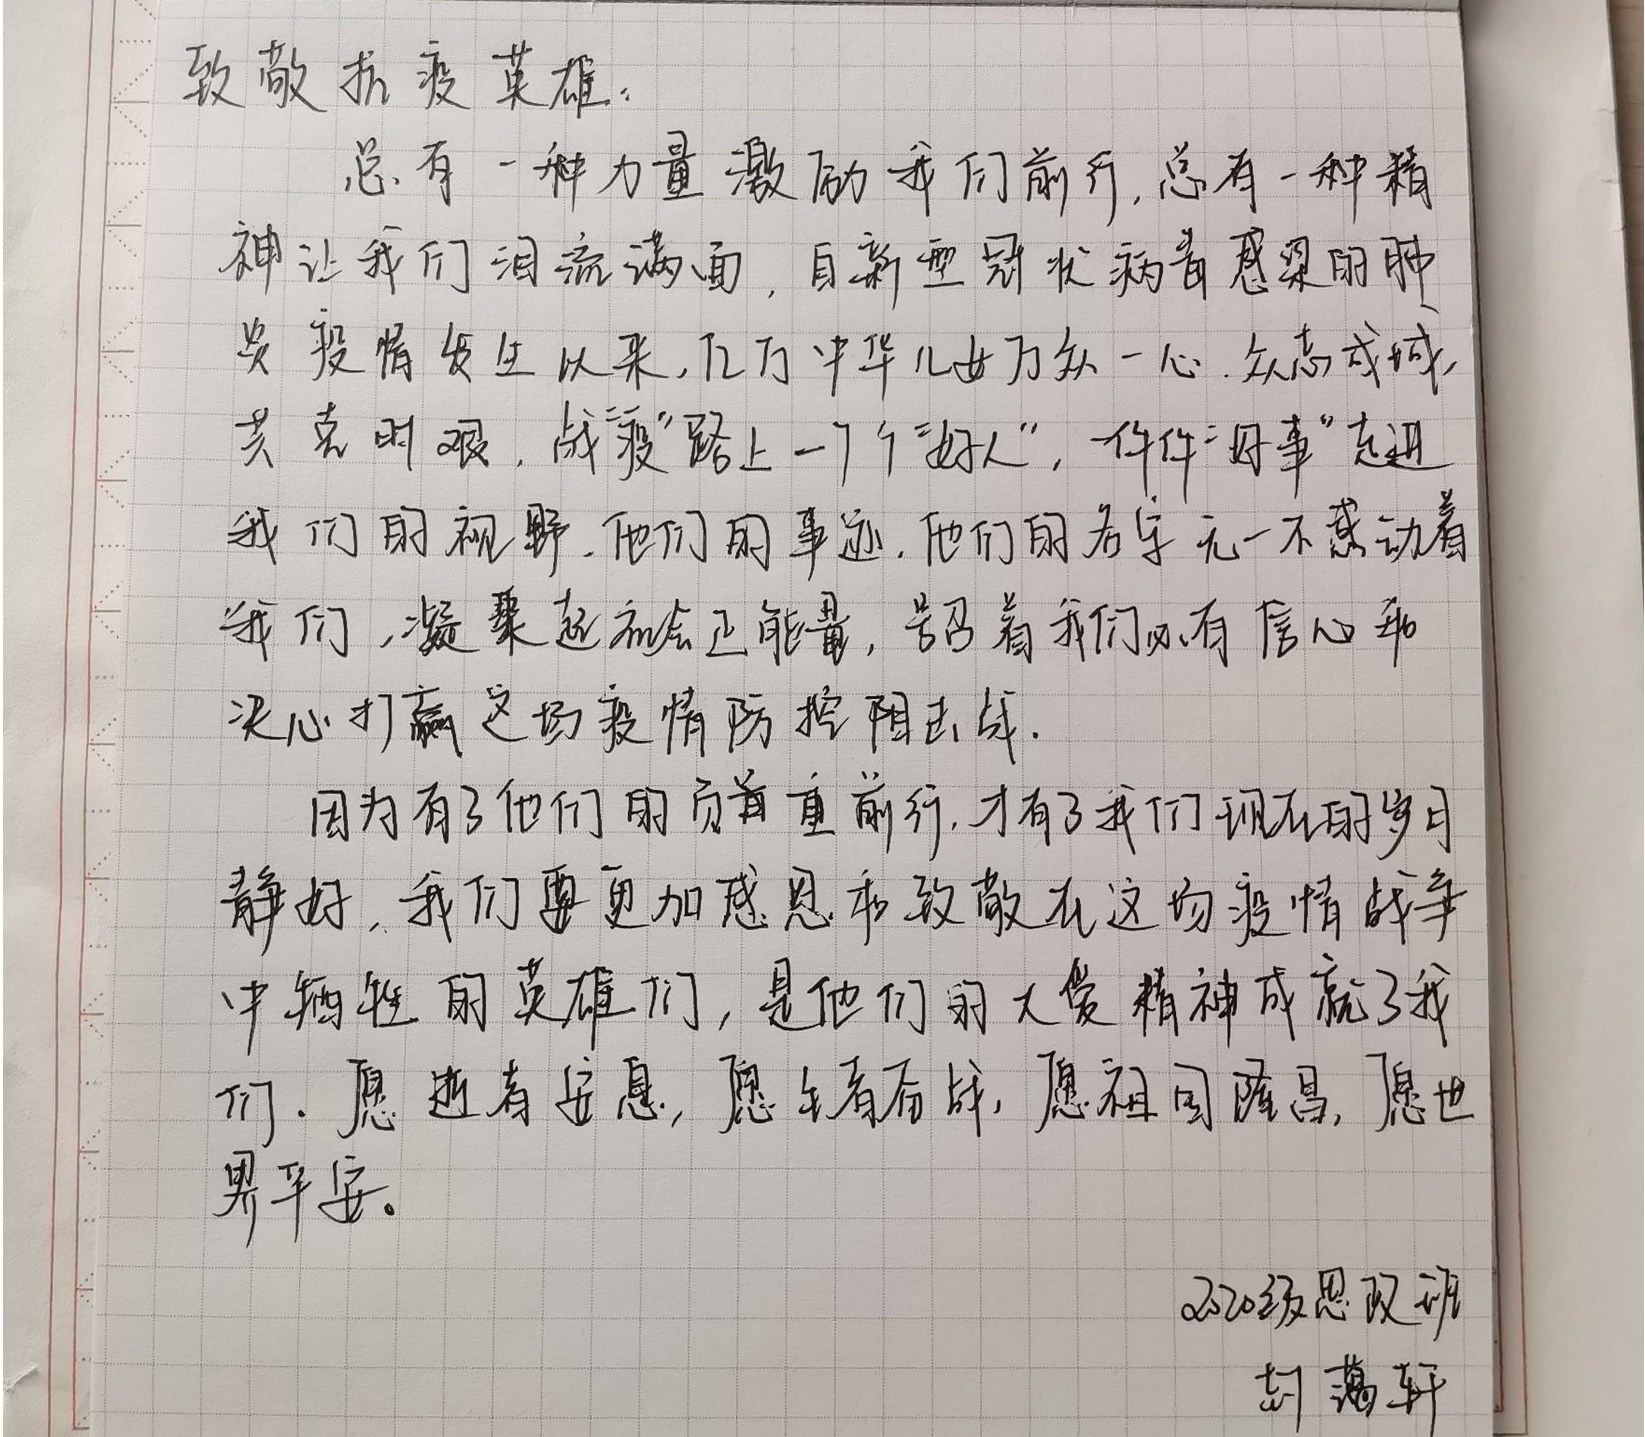 致敬抗疫英雄：
总有一种力量激励我们前行，总有一种精
神让我们泪流满面，自新型冠状病毒感染的肺
炎疫情发生以来，亿万中华儿女万众一心、众志成城，
共克时艰，战“疫”路上一个个“好人”，一件件“好事”走进
我们的视野，他们的事迹，他们的名字无一不感动着
我们，凝聚起社会正能量，号召着我们必有信心和
决心打赢这场疫情防控阻击战.
因为有了他们的负重前行，才有了我们现在的岁月
静好，我们要更加感恩和致敬在这场疫情战争
中牺牲的英雄们，是他们的大爱精神成就了我
们. 愿逝者安息，愿生者奋战，愿祖国隆昌，愿世
界平安。
2020级思政班
轩